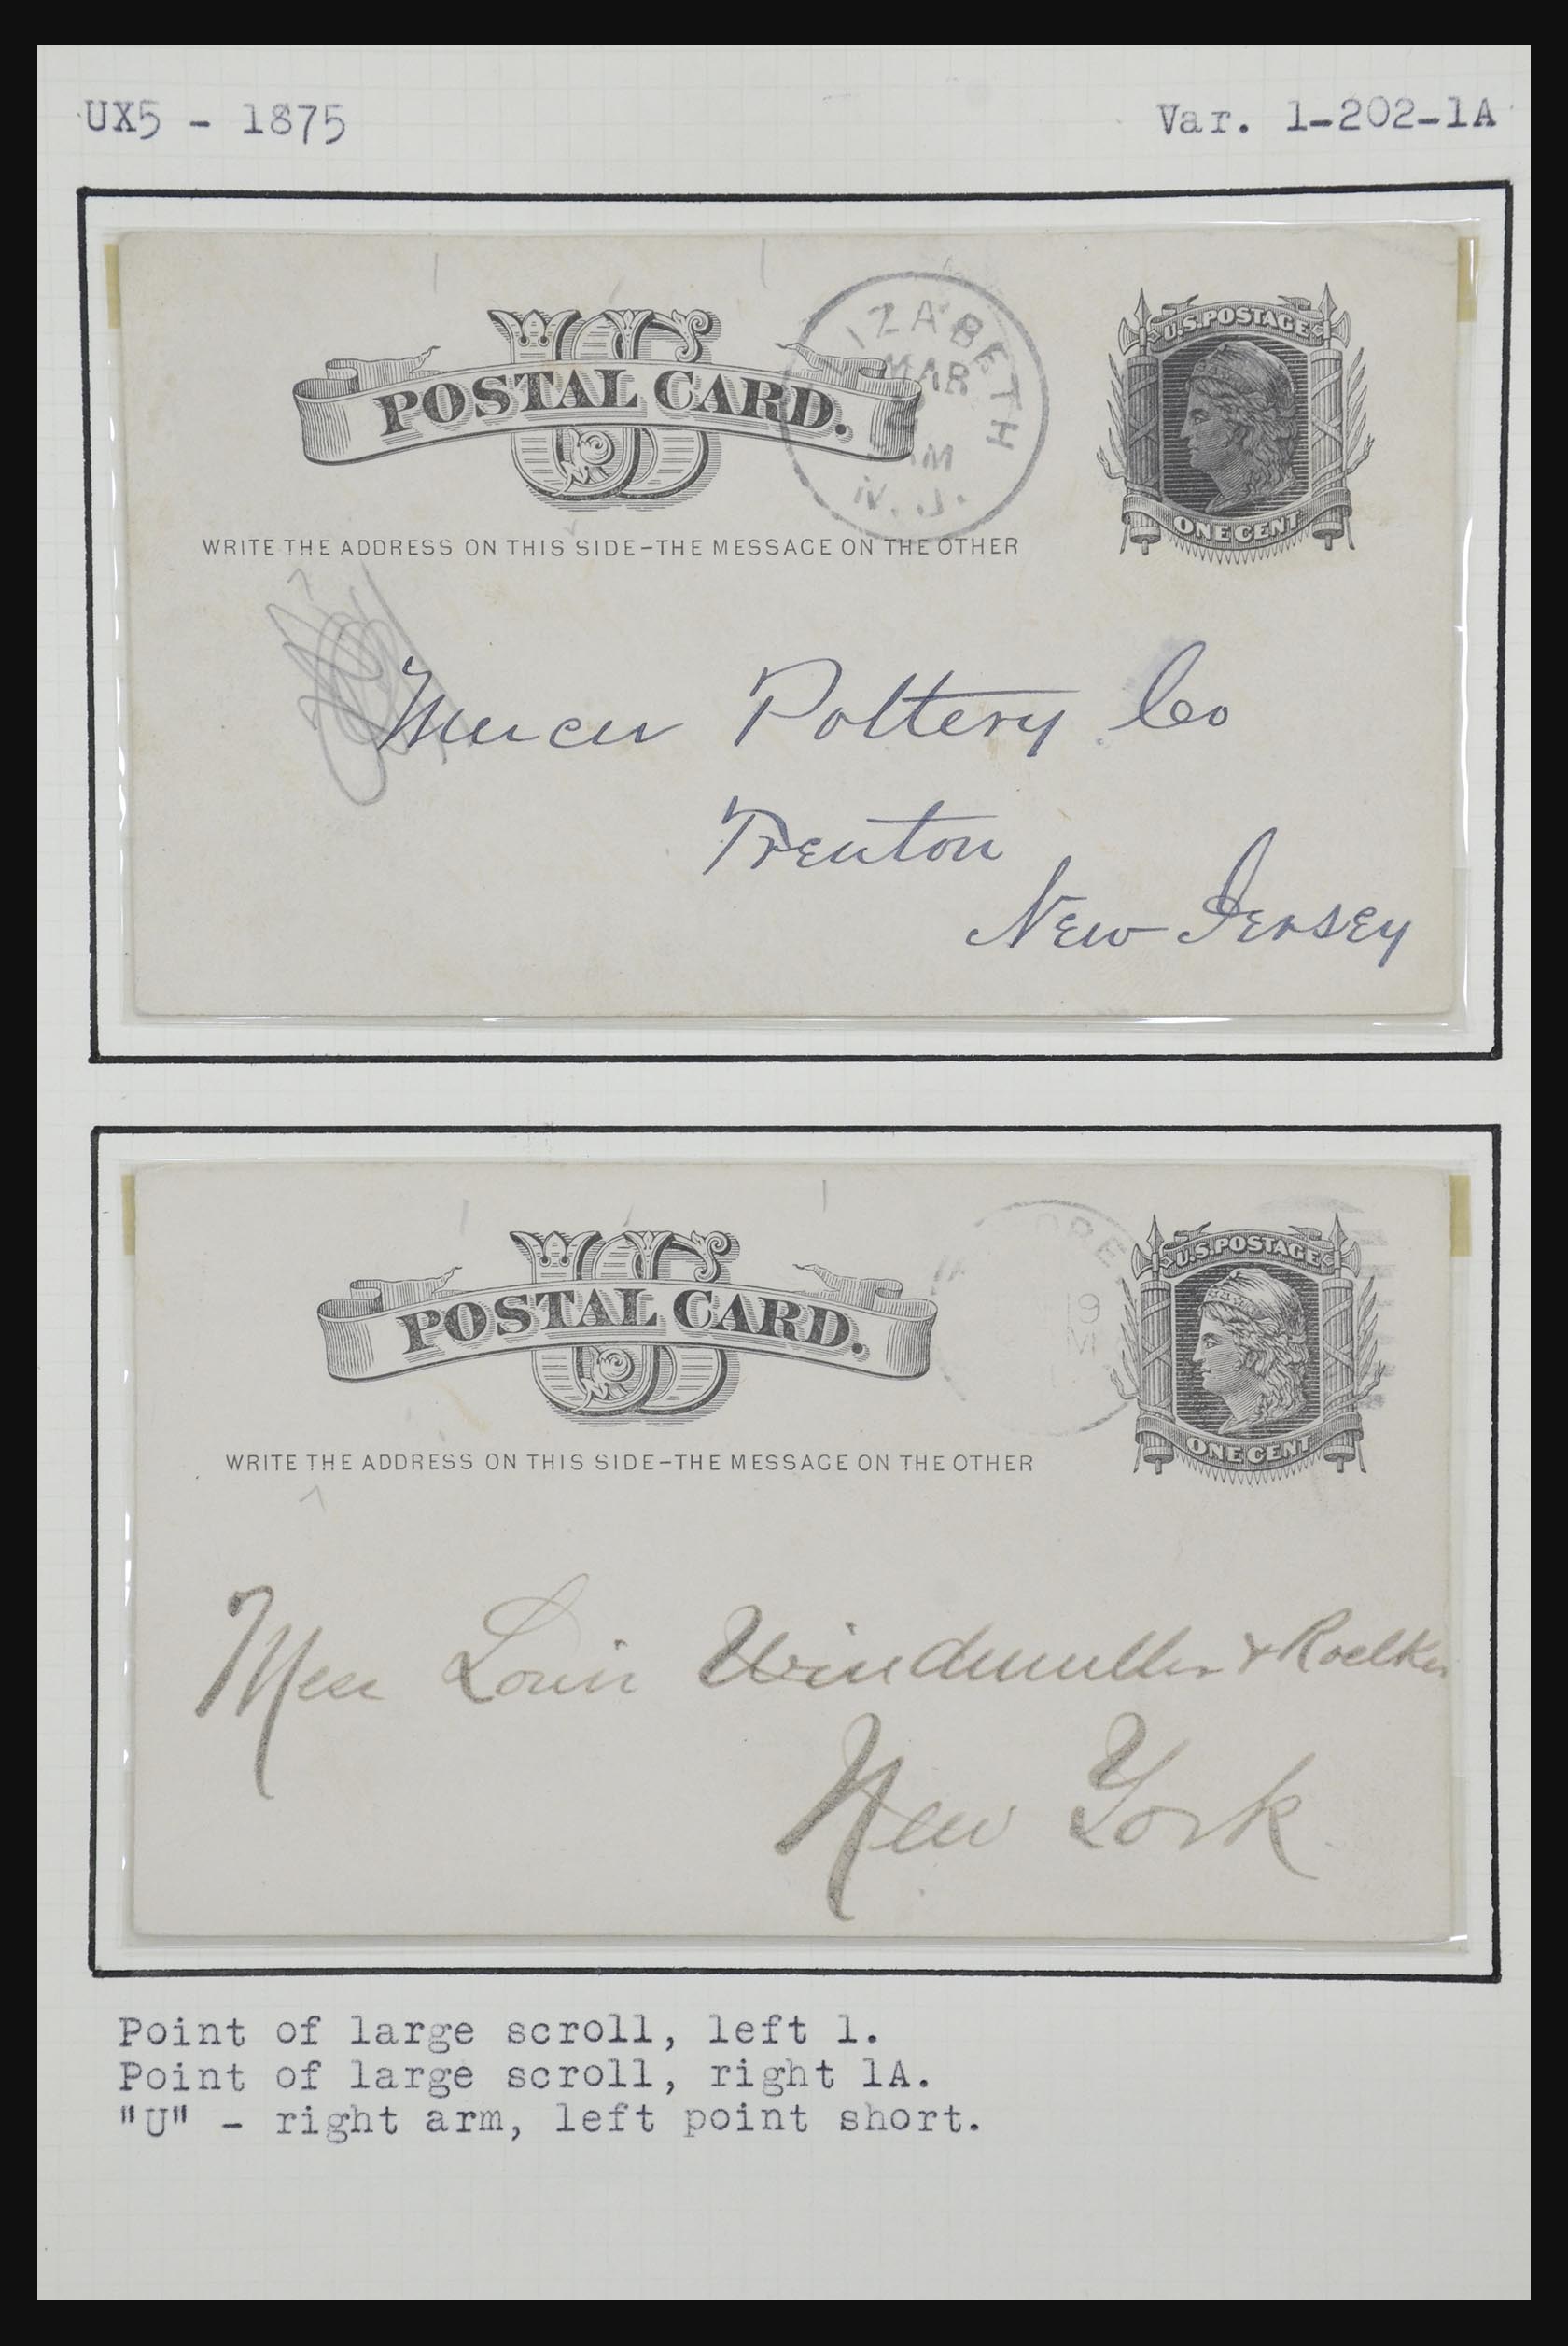 UX5 - 1875
Var. 1-202-1A
US
POSTAL CARD.
IZABETH
MAR
AM
N. J.
U.S. POSTAGE
ONE CENT
WRITE THE ADDRESS ON THIS SIDE-THE MESSAGE ON THE OTHER
Mercer Pottery Co
Trenton
New Jersey
US
POSTAL CARD.
19
M
U.S. POSTAGE
ONE CENT
WRITE THE ADDRESS ON THIS SIDE-THE MESSAGE ON THE OTHER
Mess Louis Windmuller & Roelker
New York
Point of large scroll, left 1.
Point of large scroll, right 1A.
"U" - right arm, left point short.